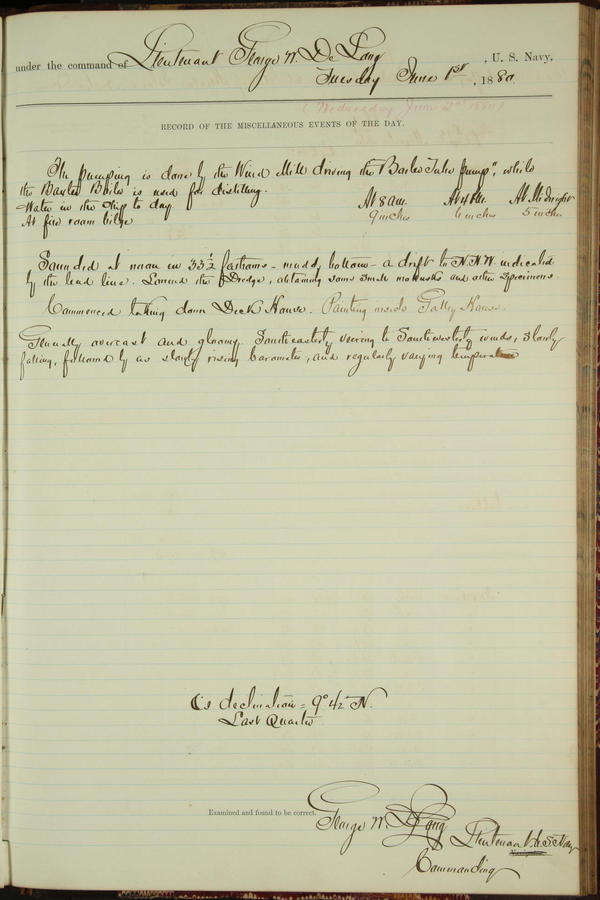 under the command of Lieutenant George W. De Long , U. S. Navy,
Tuesday June 1st , 1880
(Wednesday, June 2nd 1880)
RECORD OF THE MISCELLANEOUS EVENTS OF THE DAY.
The pumping is done by the Wind Mill driving the "Baxter Tube pump", while
the Baxter Boiler is used for distilling.
Water in the ship to day At 8 a.m. At 4 P.M. At Midnight
At fire room bilge 9 inches 6 inches 5 inches
Sounded at noon in 33½ fathoms - muddy bottom - a drift to N.N.W. indicated
by the lead line. Lowered the Dredge, obtaining some small mollusks and other specimens.
Commenced taking down Deck House. Painting inside Galley House.
Generally overcast and gloomy. Southeasterly veering to Southwesterly winds, slowly
falling, followed by as slowly rising barometer, and regularly varying temperature
☾'s declination = 9° 42' N.
Last Quarter
Examined and found to be correct.
George W. De Long Lieutenant U.S. Navy
Commanding